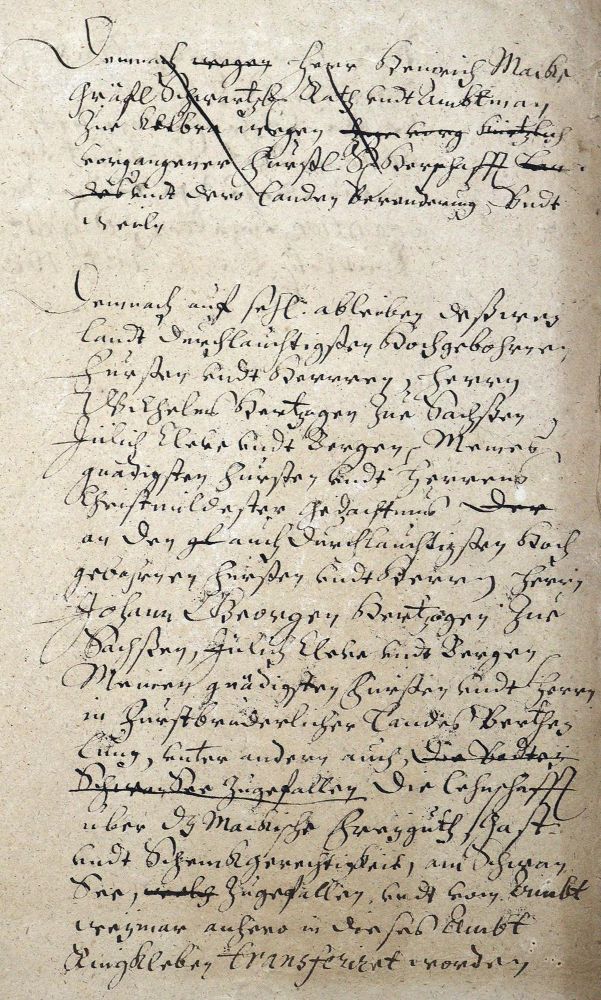 Demnach wegen Herr Heinrich Macke
Gräfl. Schwartzb. Rath undt Ambtman
Zue Kelbra wegen vorg kürtzlich
vorgangener Fürstl. Herrschafft Lan-
des undt dero Landen Veränderung, Undt
weyln
Demnach auf sehl. ableiben deßwey
landt Durchlauchtigsten Hochgebohrnen
Fürsten undt Herrren, Herrn
Wilhelms Hertzogen Zue Sachßen,
Jülich Kleve undt Bergen, Meines
gnädigsten Fürsten undt Herrens
Christmildester gedächtnus der
an den auch Durchlauchtigsten Hoch
gebohrnen Fürsten undt Herrn Herrn
Johann Georgen Hertzogen Zue
Sachßen, Jülich Kleve undt Bergen
Meinen gnädigsten Fürsten undt Herrn
in Fürstbrüderlicher Landes Verthey
lung, unter andern auch, die
SchwanSee Zugefallen die Lehnschafft
über dz Mackische Freyguth
undt Schenckgerechtigkeit, am Schwan
See, Zugefallen, undt vom Ambt
weymar anhero in dieses Ambt
Ringkleben transferiret worden